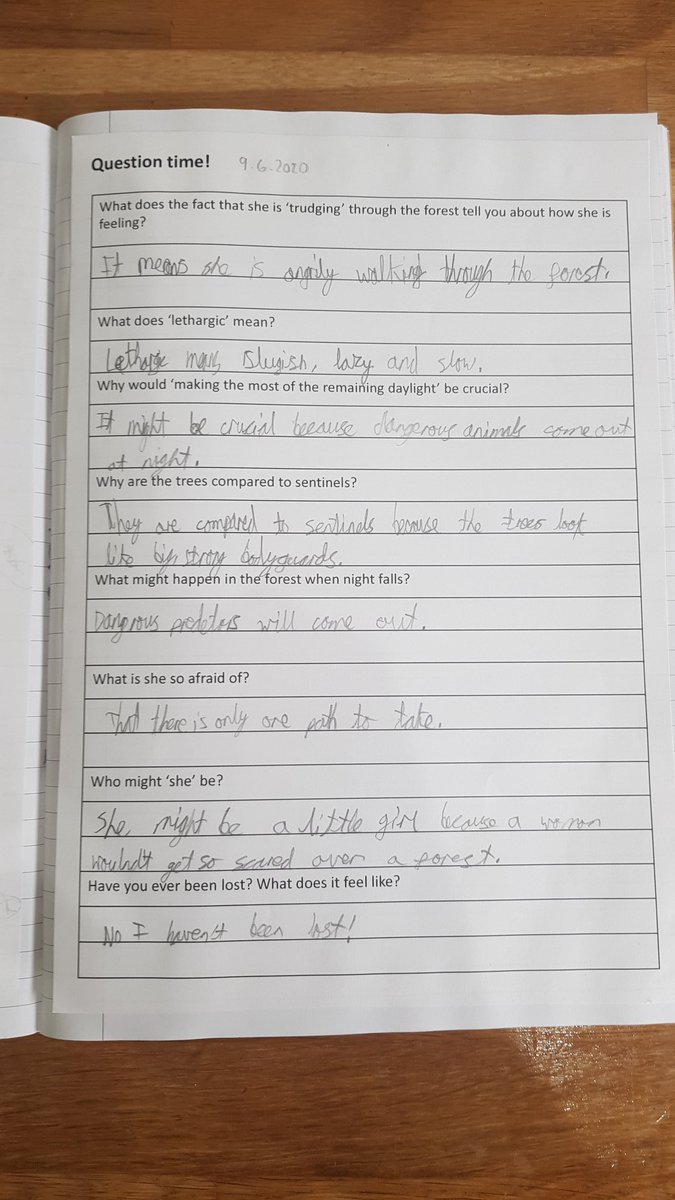 Question time! 9.6.2020
What does the fact that she is ‘trudging’ through the forest tell you about how she is
feeling?
It means she is angrily walking through the forest.
What does ‘lethargic’ mean?
means Slugish, lazy and slow.
Why would ‘making the most of the remaining daylight’ be crucial?
It might be crucial because dangerous animals come out
at night.
Why are the trees compared to sentinels?
They are compared to sentinels because the trees look
like big strong bodyguards.
What might happen in the forest when night falls?
Dangrous predeters will come out.
What is she so afraid of?
That there is only one path to take.
Who might ‘she’ be?
She, might be a little girl because a woman
get so scared over a forest.
Have you ever been lost? What does it feel like?
No I haven't been lost!